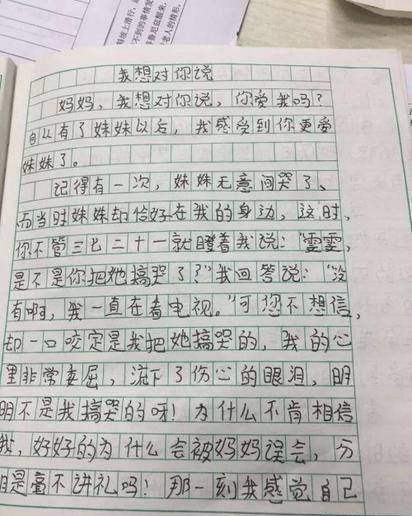 我想对你说
妈妈，我想对你说，你爱我吗？
自从有了妹妹以后，我感受到你更爱
妹妹了。
记得有一次，妹妹无意间哭了，
而当时妹妹却恰好在我的身边，这时，
你不管三七二十一就瞪着我说：“雯雯，
是不是你把她搞哭了？”我回答说：“没
有啊，我一直在看电视。”可您不想信，
却一口咬定是我把她搞哭的，我的心
里非常委屈，流下了伤心的眼泪，明
明不是我搞哭的呀！为什么不肯相信
我，好好的为什么会被妈妈误会，分
明是毫不讲礼吗！那一刻我感觉自己